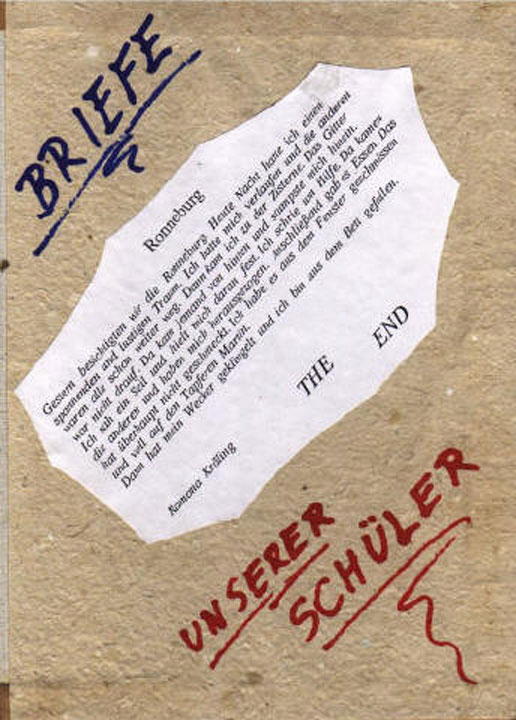 BRIEFE
Ronneburg
Gestern besichtigten wir die Ronneburg. Heute Nacht hatte ich einen
spannenden und lustigen Traum. Ich hatte mich verlaufen und die anderen
waren alle schon weiter weg. Dann kam ich zu der Zisterne. Das Gitter
war nicht drauf. Da kam jemand von hinten und schmpste mich hinein.
Ich sah ein Seil und hielt mich daran fest. Ich schrie um Hilfe. Da kamen
die anderen und haben mich herausgezogen. Anschließend gab es Essen. Das
hat überhaupt nicht geschmeckt. Ich habe es aus dem Fenster geschmissen
und voll auf den Tapferen Martin.
Dann hat mein Wecker geklingelt und ich bin aus dem Bett gefallen.
THE END
Ramona
UNSERER
SCHÜLER